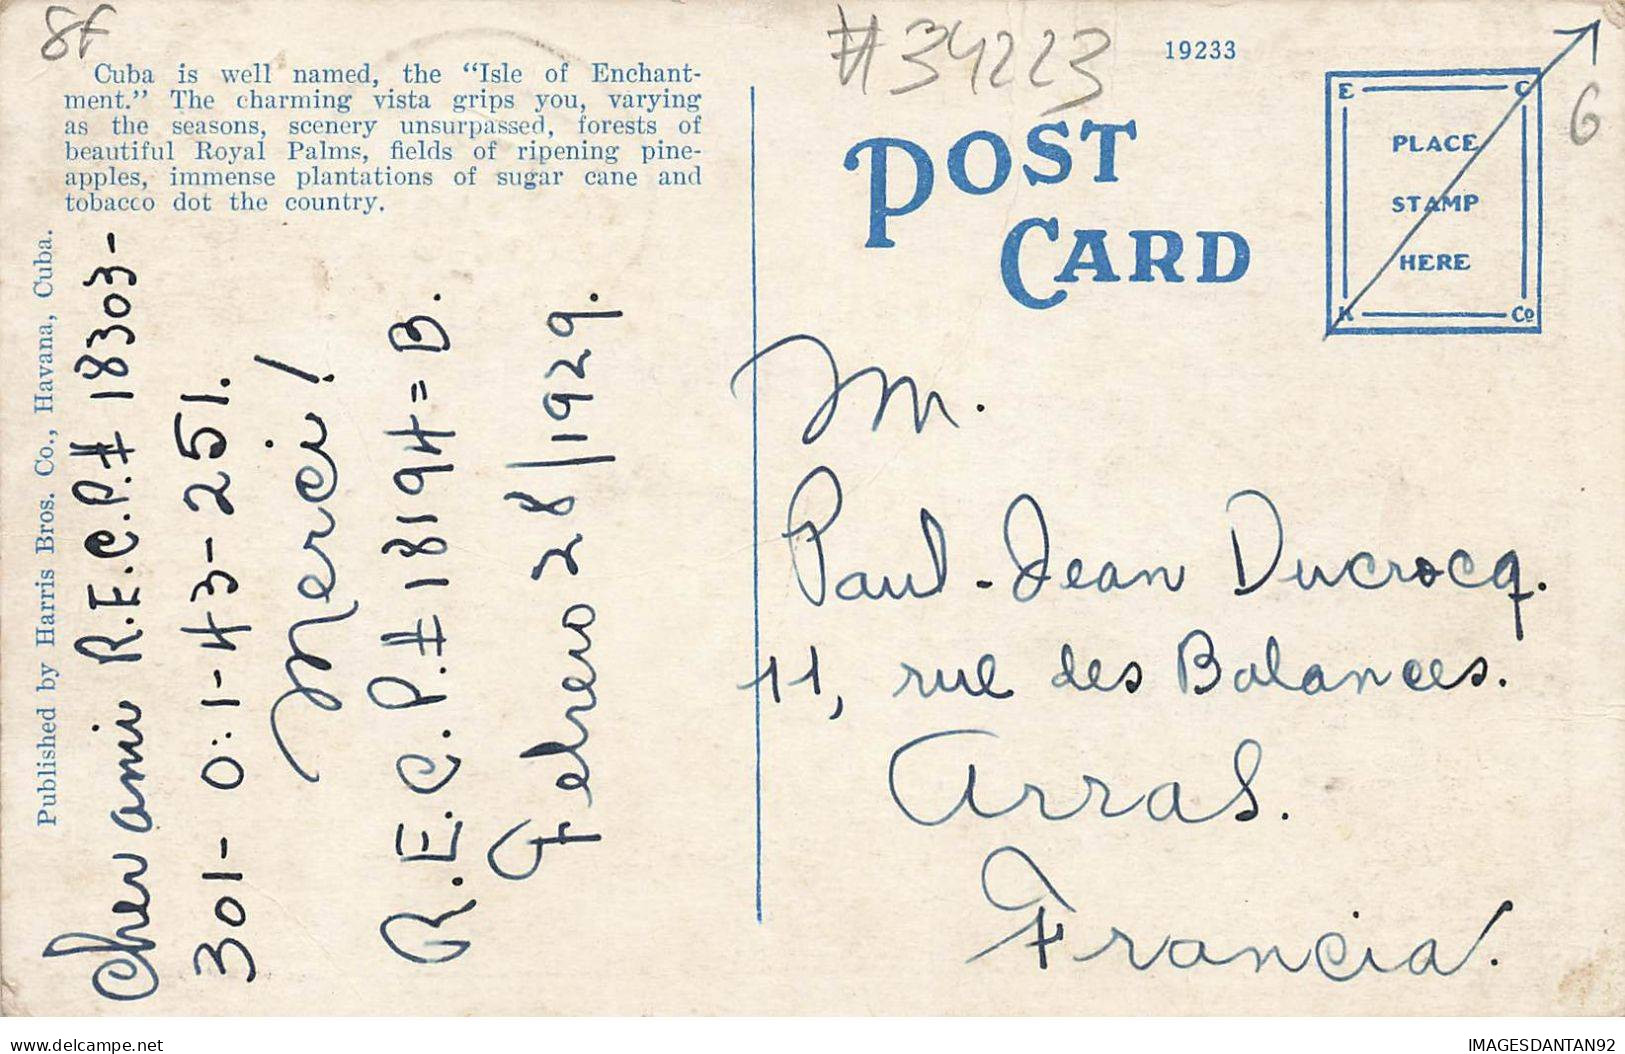 8F
#34223
19233
6
Cuba is well named, the “Isle of Enchant-
ment.” The charming vista grips you, varying
as the seasons, scenery unsurpassed, forests of
beautiful Royal Palms, fields of ripening pine-
apples, immense plantations of sugar cane and
tobacco dot the country.
Published by Harris Bros. Co., Havana, Cuba.
POST
CARD
E C
PLACE
STAMP
HERE
K Co
Cher ami R.E.C.P.# 18303-
301-0:1-43-251.
Merci!
R.E.C.P.# 18194=B.
Febrero 28/1929.
M.
Paul-Jean Ducrocq.
11, rue des Balances.
Arras.
Francia.
IMAGESDANTAN92
delcampe.net